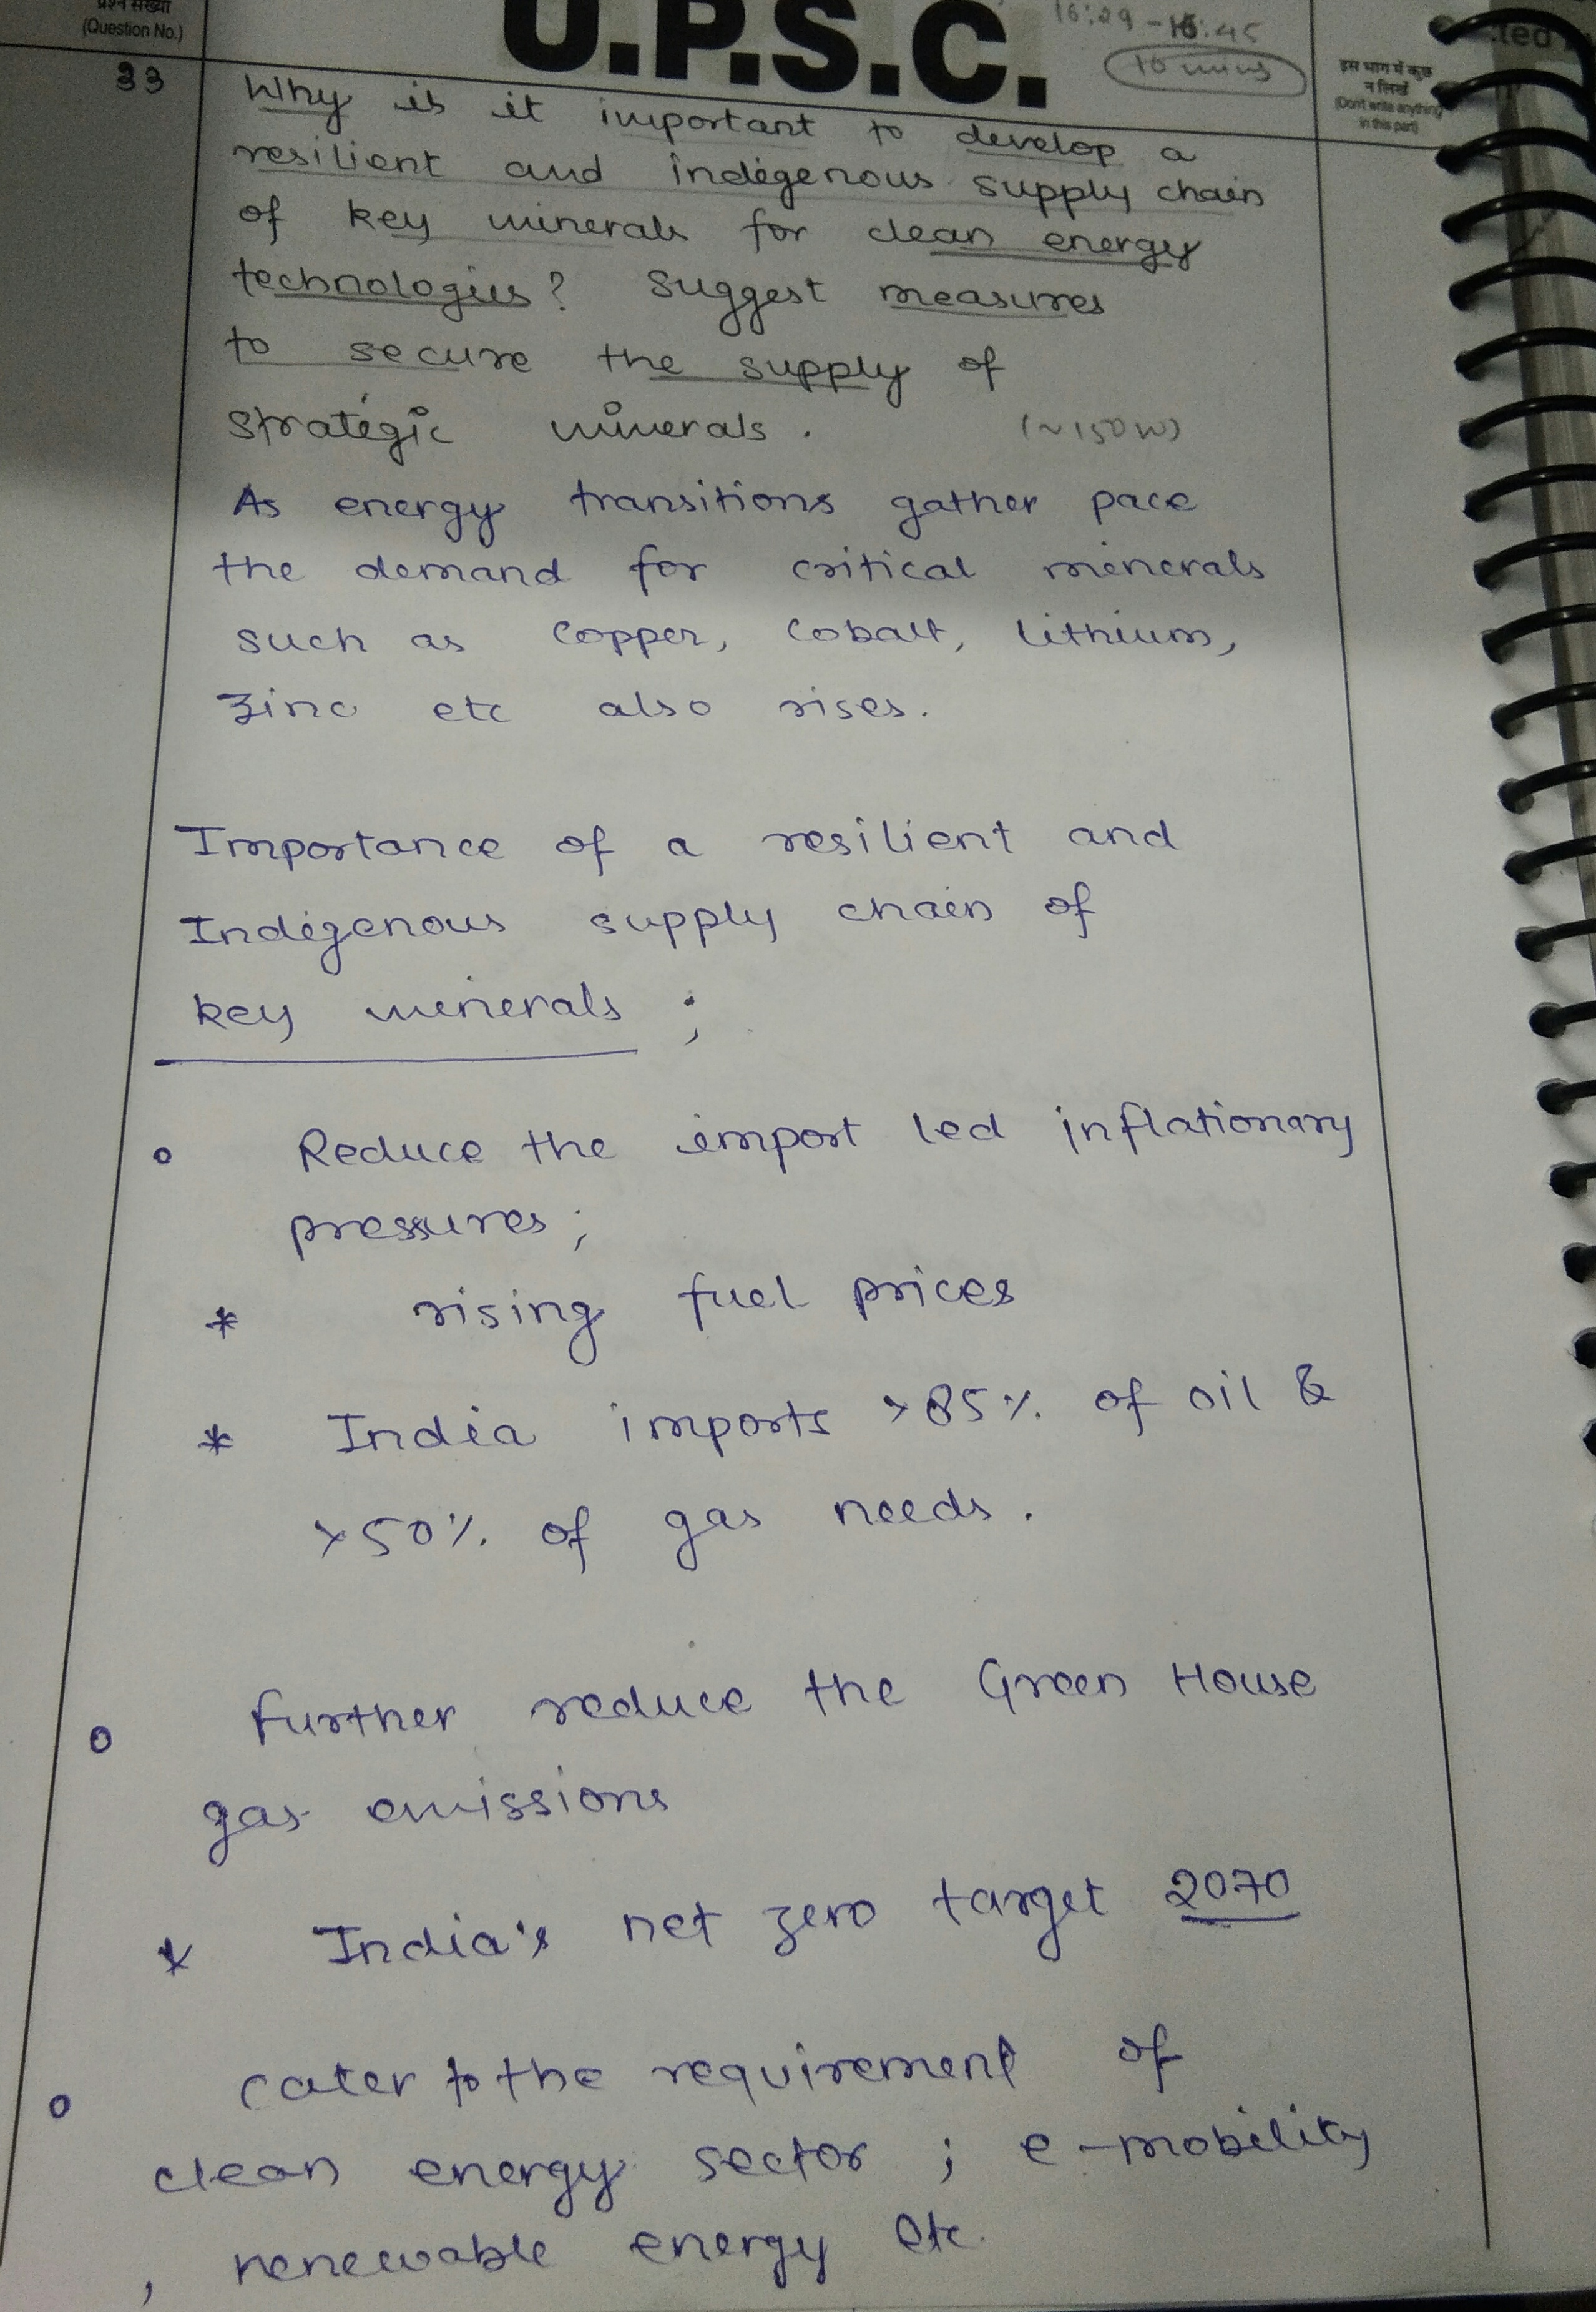 प्रश्न संख्या
(Question No.)
U.P.S.C.
16:29 - 16:45
10 mins
इस भाग में कुछ
न लिखें
(Don't write anything
in this part)
33
Why is it important to develop a
resilient and indigenous supply chain
of key minerals for clean energy
technologies? Suggest measures
to secure the supply of
strategic minerals. (~150W)
As energy transitions gather pace
the demand for critical minerals
such as Copper, Cobalt, Lithium,
Zinc etc also rises.
Importance of a resilient and
Indigenous supply chain of
key minerals ;
° Reduce the import led inflationary
pressures ;
* rising fuel prices
* India imports >85% of oil &
>50% of gas needs.
° further reduce the Green House
gas emissions
* India's net zero target 2070
° cater to the requirement of
clean energy sector ; e-mobility
, renewable energy etc.